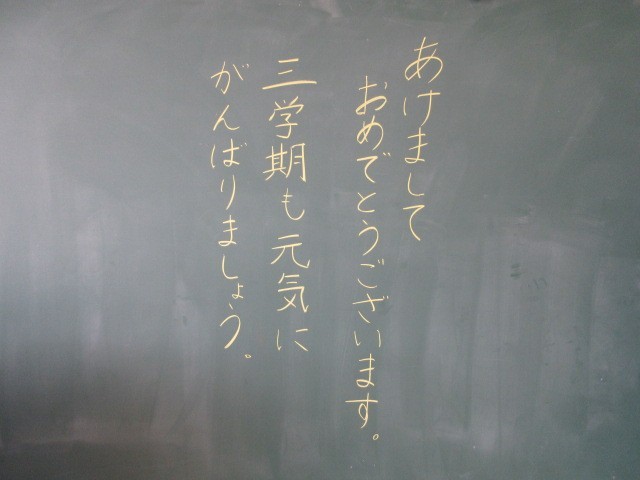 あけまして
おめでとうございます。
三学期も元気に
がんばりましょう。